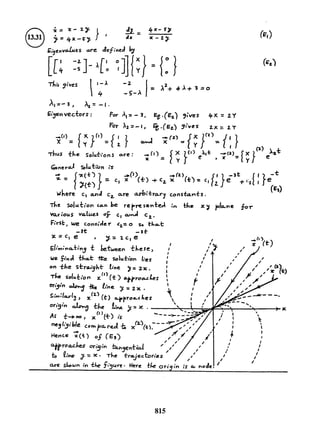 13.31
ẋ = x - 2y
ẏ = 4x - 5y } , dy/dx = (4x - 5y)/(x - 2y) (E1)
Eigenvalues are defined by
[ [1 -2; 4 -5] - λ [1 0; 0 1] ] {X; Y} = {0; 0} (E2)
This gives | 1-λ -2; 4 -5-λ | = λ² + 4λ + 3 = 0
λ₁ = -3 , λ₂ = -1.
Eigenvectors: For λ₁ = -3, Eq. (E2) gives 4X = 2Y
For λ₂ = -1, Eq. (E2) gives 2X = 2Y
X⃗^(1) = {X; Y}^(1) = {1; 2} and X⃗^(2) = {X; Y}^(2) = {1; 1}
Thus the solutions are: x⃗^(1) = {X; Y}^(1) e^λ₁t , x⃗^(2) = {X; Y}^(2) e^λ₂t
General solution is
x⃗ = {x(t); y(t)} = c₁ x⃗^(1)(t) + c₂ x⃗^(2)(t) = c₁ {1; 2} e^-3t + c₂ {1; 1} e^-t (E3)
where c₁ and c₂ are arbitrary constants.
The solution can be represented in the xy plane for
various values of c₁ and c₂.
First, we consider c₂ = 0 so that
x = c₁ e^-3t , y = 2 c₁ e^-3t
Eliminating t between these,
we find that the solution lies
on the straight line y = 2x.
The solution x⃗^(1)(t) approaches
origin along the line y = 2x.
Similarly, x⃗^(2)(t) approaches
origin along the line y = x.
As t→∞, x⃗^(1)(t) is
negligible compared to x⃗^(2)(t).
Hence x⃗(t) of (E3)
approaches origin tangential
to line y = x. The trajectories
are shown in the figure. Here the origin is a node.
y
x⃗^(1)(t)
x⃗^(2)(t)
x
815